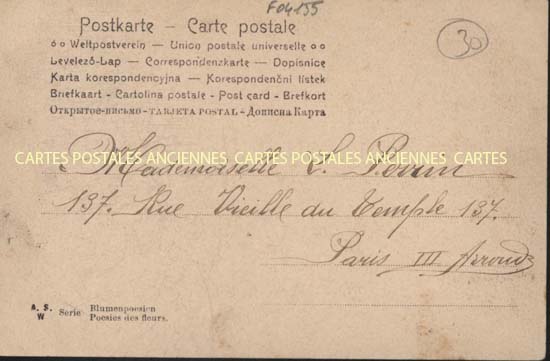 F04155
30
Postkarte – Carte postale
Weltpostverein — Union postale universelle
Levelező-Lap — Correspondenzkarte — Dopisnice
Karta korespondencyjna — Korespondenční lístek
Briefkaart - Cartolina postale - Post card - Brefkort
Открытое-письмо - TARJETA POSTAL - Дописна Карта
CARTES POSTALES ANCIENNES CARTES POSTALES ANCIENNES CARTES
Mademoiselle L. Perrin
137. Rue Vieille du Temple 137.
Paris III Arrondt
A. S. W Serie Blumenpoesien
Poesies des fleurs.